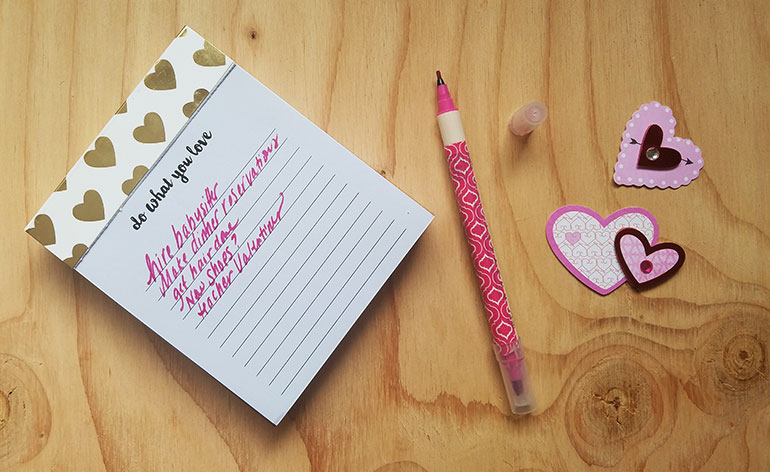 do what you love
hire babysitter
Make dinner reservations
get hair done
New Shoes?
teacher Valentines